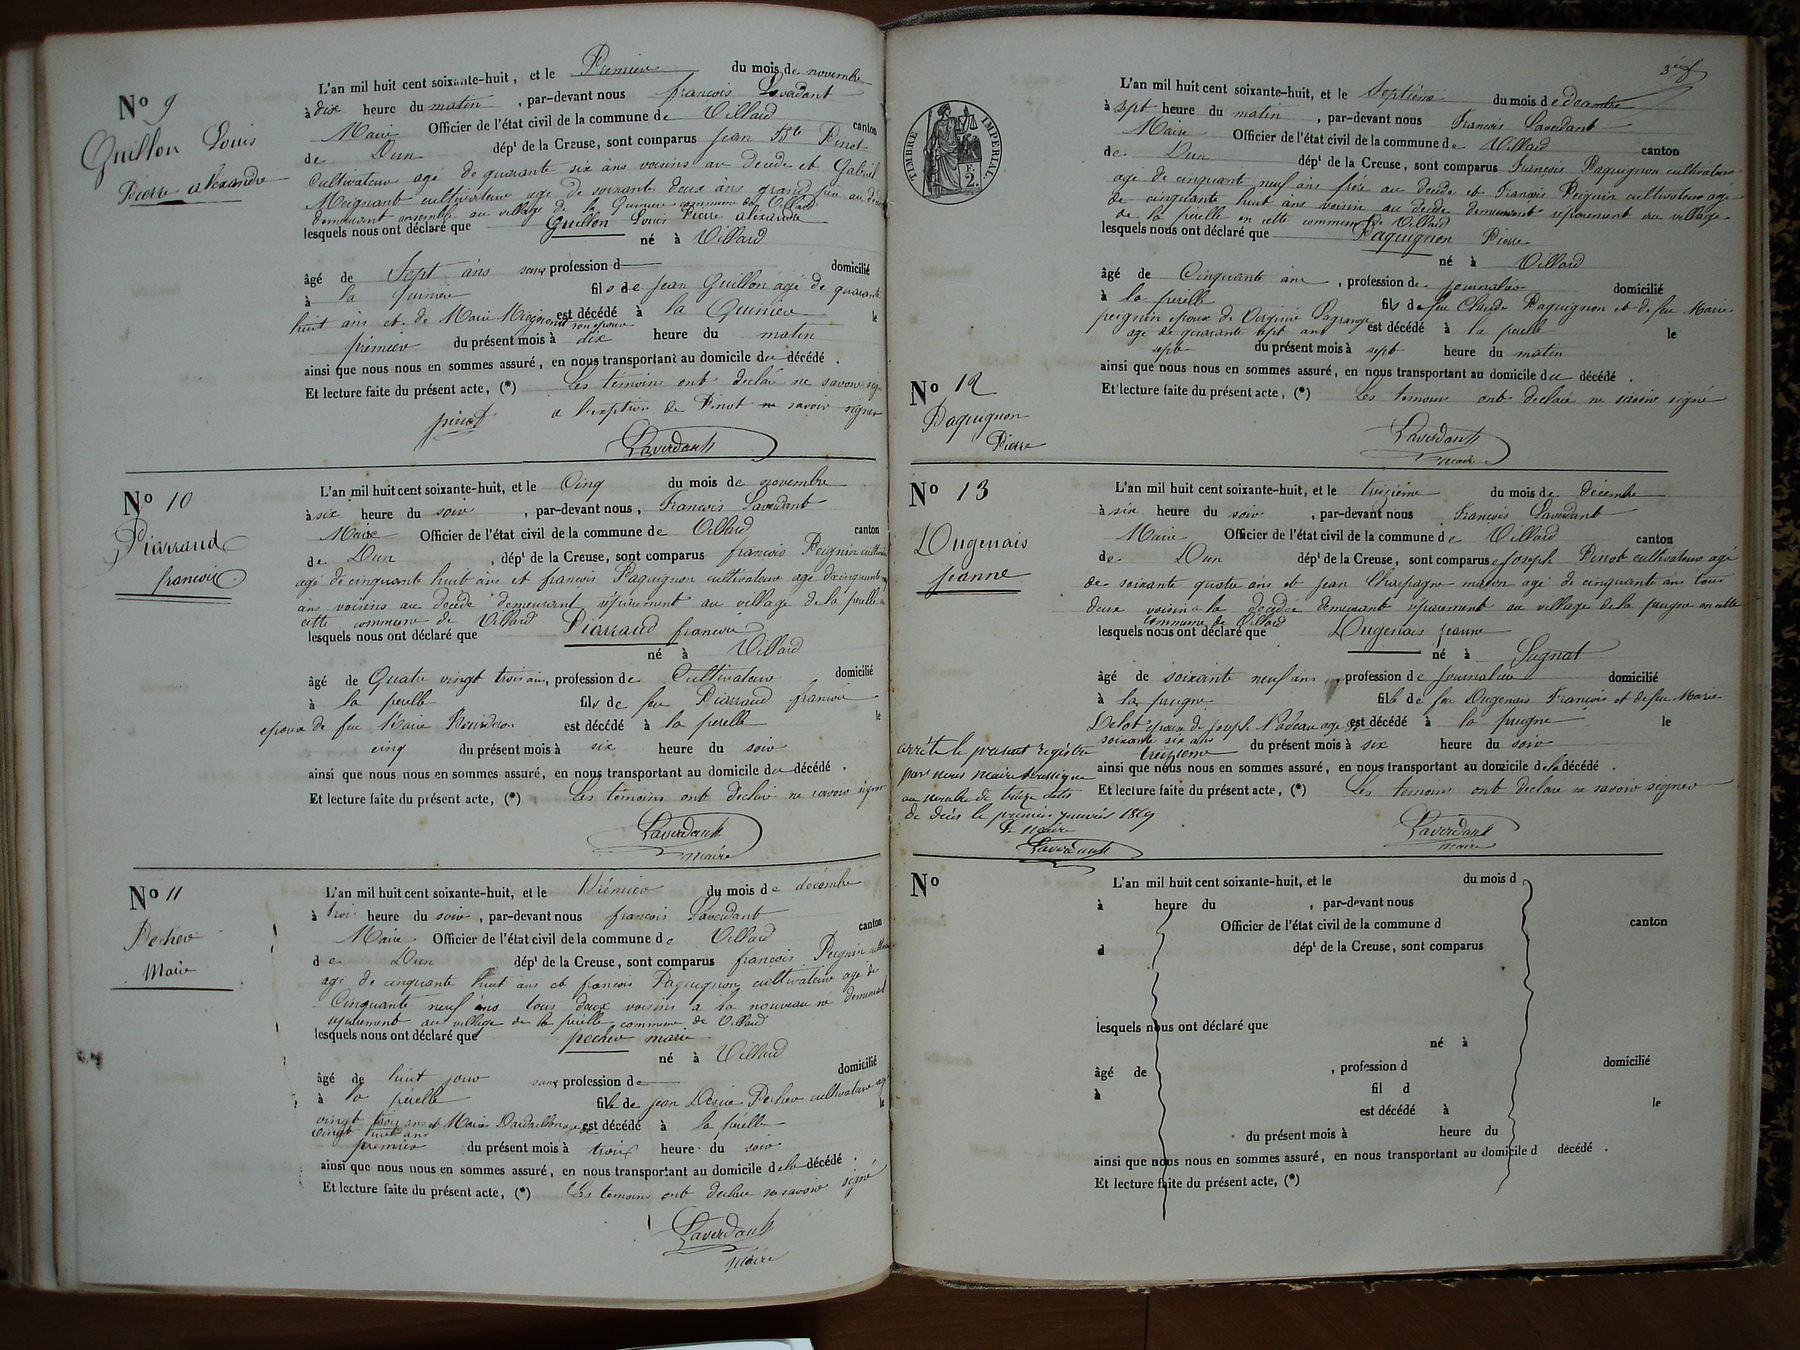 L'an mil huit cent soixante-huit, et le Premiere du mois de novembre
No 9
à dix heure du matin, par-devant nous françois Laverdant
Guillon Louis
Pierre alexandre
Maire Officier de l'état civil de la commune de Villard canton
de Dun dépt de la Creuse, sont comparus Jean Bte Pinot
Cultivateur agé de quarante six ans voisins au decede et Gabriel
Moignant cultivateur age de soixante deux ans grand au
demeurant ensemble au village de la commune de Villard
lesquels nous ont déclaré que Guillon Louis Pierre alexandre
né à Villard
âgé de Sept ans sans profession d domicilié
à la fils de Jean Guillon agé de quarante
huit ans et de Marie son epouse est décédé à la le
premier du présent mois à dix heure du matin
ainsi que nous nous en sommes assuré, en nous transportant au domicile du décédé.
Et lecture faite du présent acte, (*) Les témoins ont déclaré ne savoir
a l'exption de Pinot ne savoir signer
pinot
Laverdant
No 10
Piarraud
francois
L'an mil huit cent soixante-huit, et le Cinq du mois de novembre
à six heure du soir, par-devant nous, Francois Laverdant
Maire Officier de l'état civil de la commune de Villard canton
de Dun, dépt de la Creuse, sont comparus francois Peignin
agé de cinquante huit ans et francois Paquignon cultivateur agé de cinquante
ans voisins au decede demeurant séparement au village de la perelle
cette commune de Villard
lesquels nous ont déclaré que Piarraud francois
né à Villard
âgé de Quatre vingt trois ans, profession de Cultivateur domicilié
à la perelle fils de feu Piarraud francois
epoux de feu Marie est décédé à la perelle le
cinq du présent mois à six heure du soir
ainsi que nous nous en sommes assuré, en nous transportant au domicile du décédé.
Et lecture faite du présent acte, (*) Les témoins ont déclaré ne savoir signer
Laverdant
maire
No 11
Pecher
Marie
L'an mil huit cent soixante-huit, et le Prémier du mois de décembre
à troi heure du soir, par-devant nous francois Laverdant
Maire Officier de l'état civil de la commune de Villard canton
de Dun dépt de la Creuse, sont comparus francois Peignin
agé de cinquante huit ans et francois Paquignon cultivateur agé de
Cinquante neuf ans tous deux voisins a la nouveau né demeurant
séparement au village de la perelle commune de Villard
lesquels nous ont déclaré que pecher marie
né à Villard
âgé de huit jour sans profession de domicilié
à la perelle fille de jean Désiré Pecher cultivateur
vingt trois ans et Marie est décédé à la perelle le
vingt huit ans
premier du présent mois à troix heure du soir
ainsi que nous nous en sommes assuré, en nous transportant au domicile de la décédé.
Et lecture faite du présent acte, (*) Les temoins ont declare ne savoir signé
Laverdant
Maire
TIMBRE IMPERIAL
2.
L'an mil huit cent soixante-huit, et le Septième du mois de decembre
à sept heure du matin, par-devant nous Francois Laverdant
Maire Officier de l'état civil de la commune de Villard canton
de Dun dépt de la Creuse, sont comparus François Paquignon cultivateur
age de cinquante neuf ans frère au decede et François Peignin cultivateur agé
de cinquante huit ans voisin au decede demeurant séparement au village
de la perelle en cette commune de Villard
lesquels nous ont déclaré que Paquignon Pierre
né à Villard
âgé de Cinquante ans, profession de journalier domicilié
à la perelle fils de feu Claude Paquignon et de feu Marie
peignin epoux de Virginie Lagrange est décédé à la perelle le
age de quarante sept ans
sept du présent mois à sept heure du matin
ainsi que nous nous en sommes assuré, en nous transportant au domicile du décédé.
No 12
Paquignon
Pierre
Et lecture faite du présent acte, (*) Les temoins ont declaré ne savoir signé
Laverdant
maire
No 13
Dugenais
jeanne
L'an mil huit cent soixante-huit, et le treizieme du mois de décembre
à six heure du soir, par-devant nous François Laverdant
Maire Officier de l'état civil de la commune de Villard canton
de Dun dépt de la Creuse, sont comparus Joseph Pinot cultivateur agé
de soixante quatre ans et jean Chapagne maçon agé de cinquante ans tous
deux voisin a la decedée demeurant séparement au village de la prugne en cette
commune de Villard
lesquels nous ont déclaré que Dugenais jeanne
né à Sagnat
âgé de soixante neuf ans, profession de journalier domicilié
à la prugne fille de feu Dugenais François et de feu Marie
Delot épouse de joseph Nadeau agé de est décédé à la prugne le
soixante six ans
treizieme du présent mois à six heure du soir
ainsi que nous nous en sommes assuré, en nous transportant au domicile de la décédé.
Et lecture faite du présent acte, (*) Les temoins ont declaré ne savoir signer
Laverdant
maire
arrêté le présent registre
par nous maire soussigné
au nombre de treize actes
de décès le premier janvier 1869
Le maire
Laverdant
No
L'an mil huit cent soixante-huit, et le du mois d
à heure du, par-devant nous
Officier de l'état civil de la commune d canton
d dépt de la Creuse, sont comparus
lesquels nous ont déclaré que
né à
âgé de, profession d domicilié
à fil d
est décédé à le
du présent mois à heure du
ainsi que nous nous en sommes assuré, en nous transportant au domicile d décédé.
Et lecture faite du présent acte, (*)